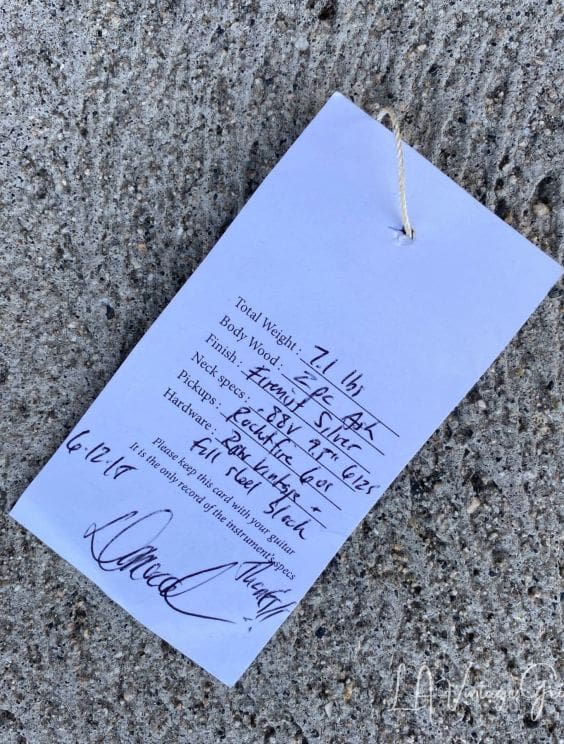 Total Weight: 7.1 lbs
Body Wood: 2pc Ash
Finish: Firemist Silver
Neck specs: .88V 9.5" 6125
Pickups: Rocketfire 60s
Hardware: Raw Vintage +
full steel block
Please keep this card with your guitar
It is the only record of the instrument's specs
6·12·18
Thanks!!
LA Vintage Gea